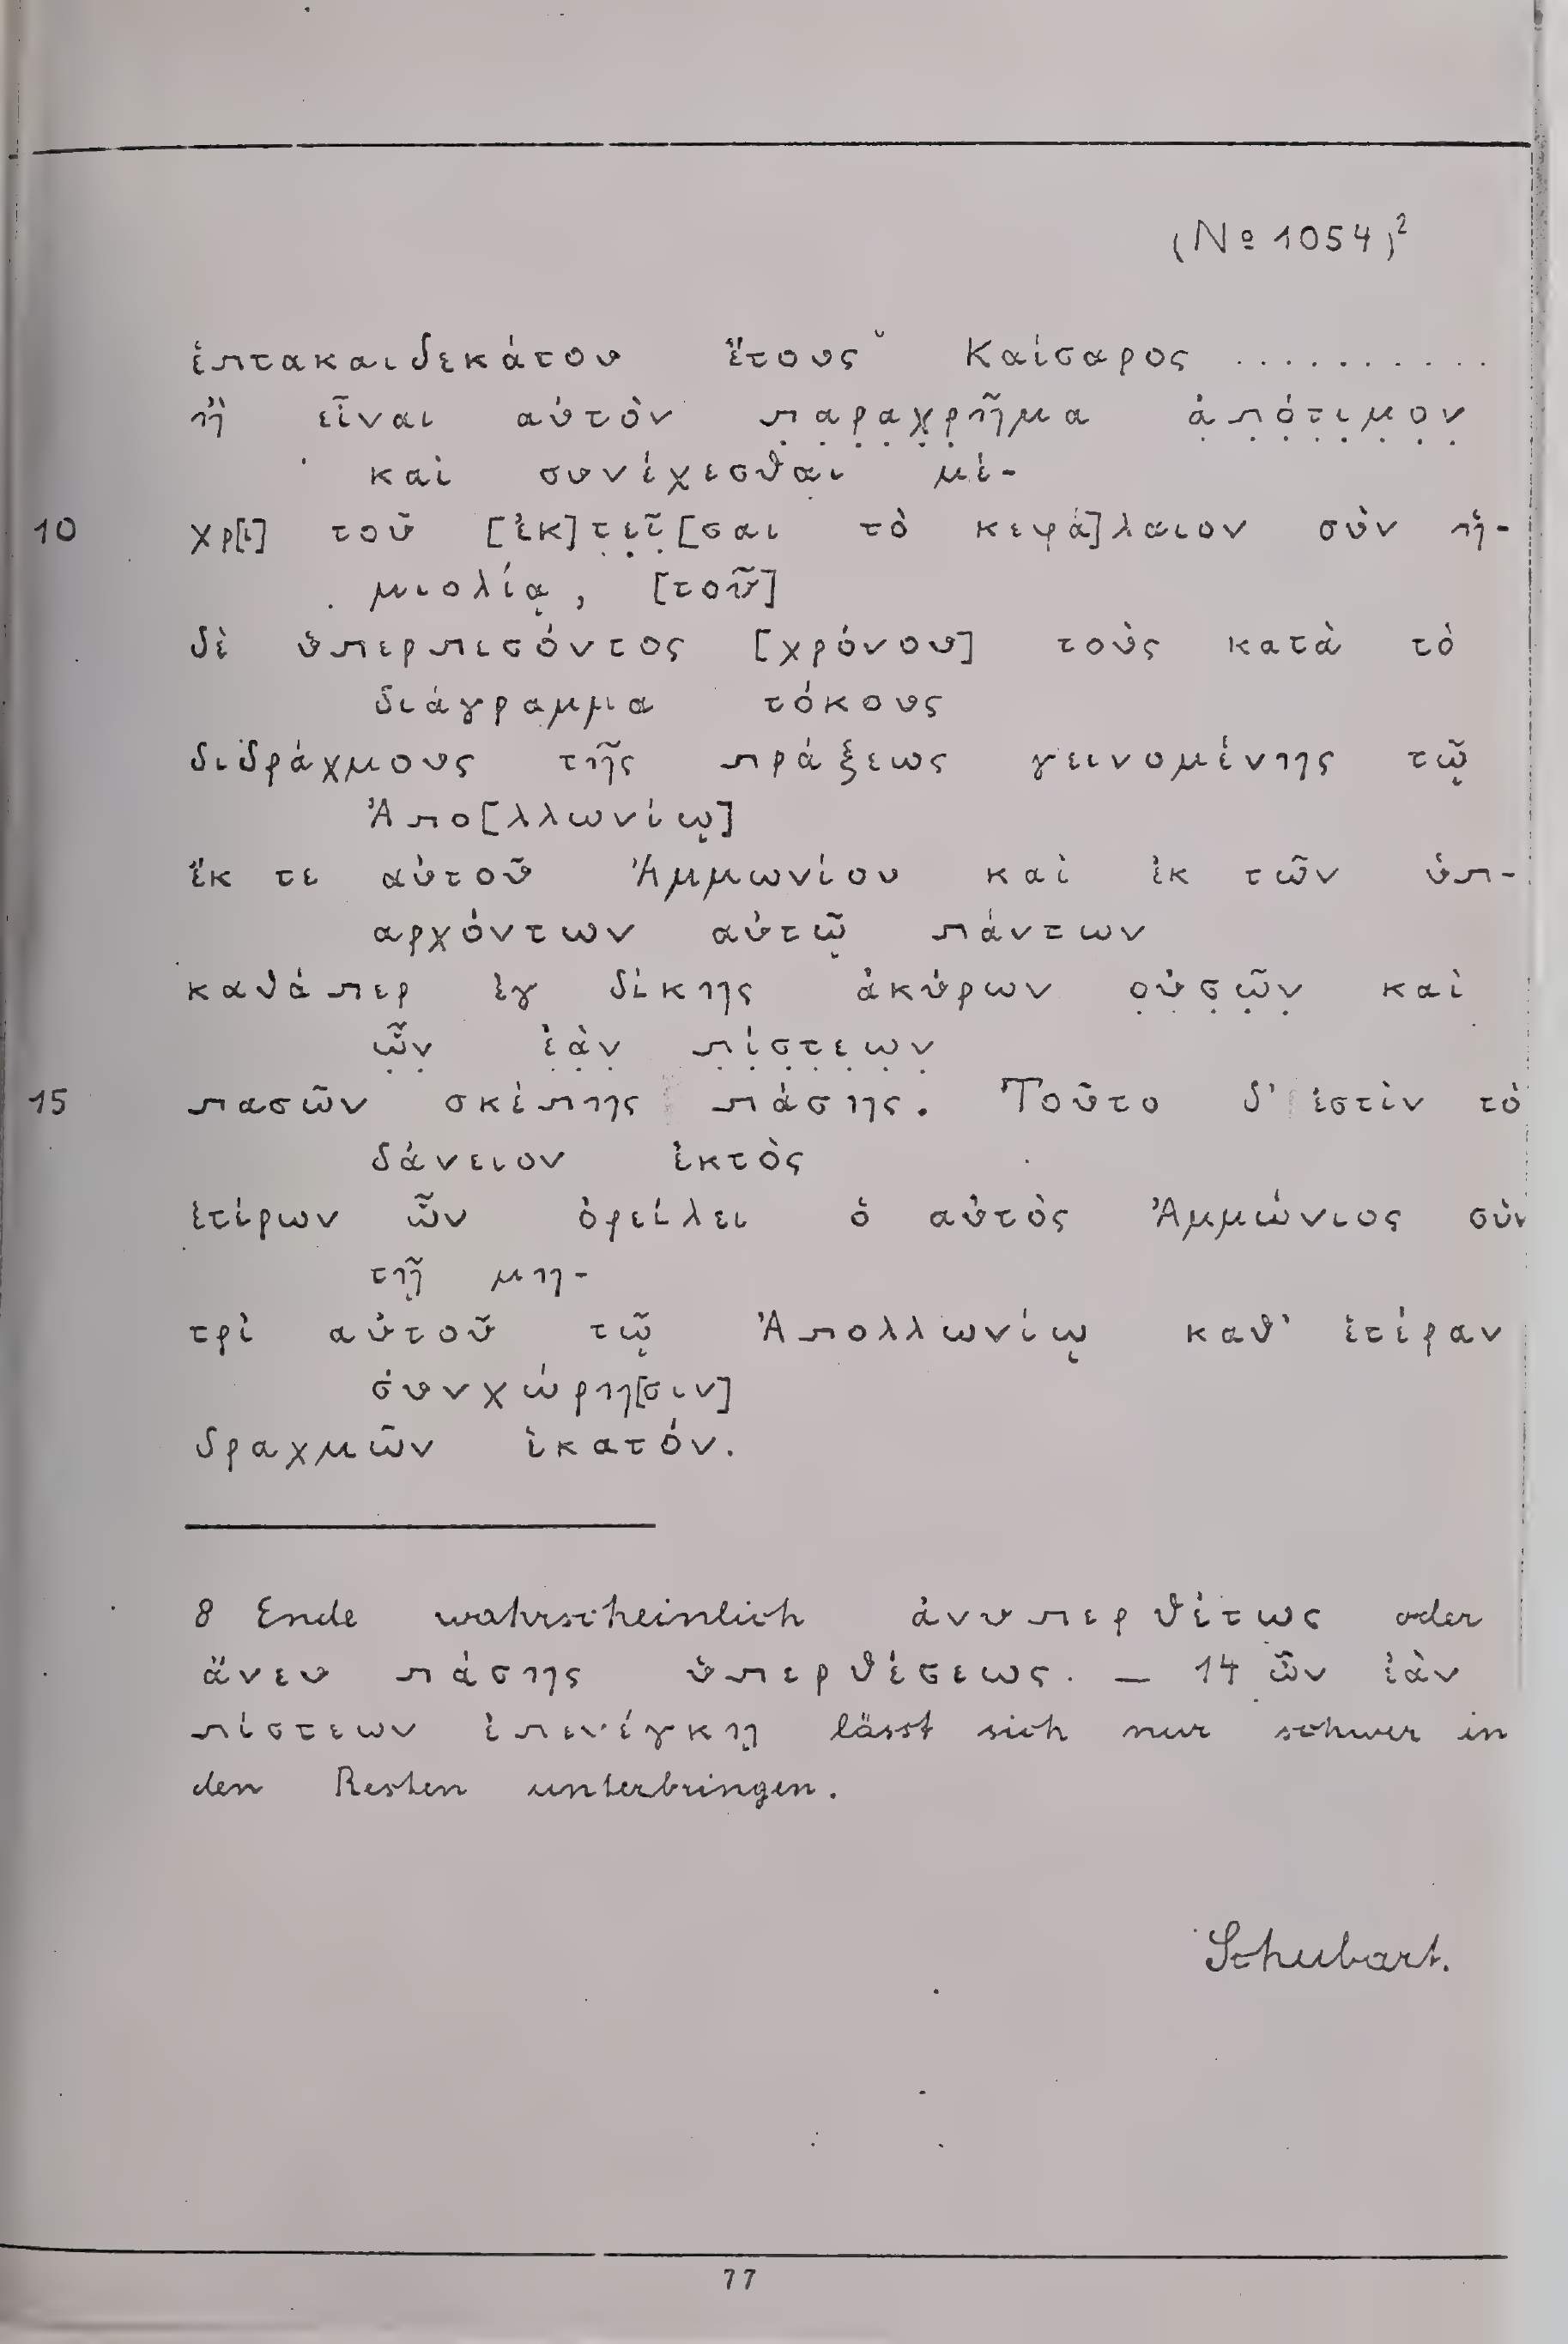 (No 1054)²
ἑπτακαιδεκάτου ἔτους Καίσαρος ..........
ἢ εἶναι αὐτὸν π̣α̣ρ̣α̣χ̣ρ̣ῆμα ἀ̣π̣ό̣τ̣ι̣μ̣ο̣ν̣
καὶ συνέχεσθαι μέ-
10 χρ[ι] τοῦ [ἐκ]τ̣ε̣ῖ̣[σαι τὸ κεφά]λαιον σὺν ἡ-
μιολίᾳ, [τοῦ]
δὲ ὑπερπεσόντος [χρόνου] τοὺς κατὰ τὸ
διάγραμμα τόκους
διδράχμους τῆς πράξεως γεινομένης τῷ
Ἀπο[λλωνίῳ]
ἔκ τε αὐτοῦ Ἀμμωνίου καὶ ἐκ τῶν ὑπ-
αρχόντων αὐτῷ πάντων
καθάπερ ἐγ δίκης ἀκύρων ο̣ὐ̣σ̣ῶ̣ν̣ καὶ
ὧ̣ν̣ ἐ̣ὰ̣ν̣ π̣ί̣σ̣τ̣ε̣ω̣ν̣
15 πασῶν σκέπης πάσης. Τοῦτο δ' ἐστὶν τὸ
δάνειον ἐκτὸς
ἑτέρων ὧν ὀφείλει ὁ αὐτὸς Ἀμμώνιος σὺν
τῇ μη-
τρὶ αὐτοῦ τῷ Ἀπολλωνίῳ καθ' ἑτέραν
συνχώρη[σιν]
δραχμῶν ἑκατόν.
8 Ende wahrscheinlich ἀνυπερθέτως oder
ἄνευ πάσης ὑπερθέσεως. — 14 ὧν ἐὰν
πίστεων ἐπενέγκῃ lässt sich nur schwer in
den Resten unterbringen.
Schubart.
77